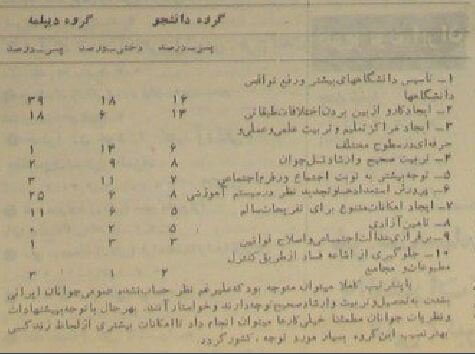 گروه دانشجو    گروه دیپلمه
پسر_درصد    دختر_درصد    پسر_درصد
۱_ تاسیس دانشگاههای بیشتر و رفع نواقص
دانشگاهها    ۱۶    ۱۸    ۳۹
۲_ ایجاد کار و از بین بردن اختلافات طبقاتی    ۱۳    ۶    ۱۸
۳_ ایجاد مراکز تعلیم و تربیت علمی و عملی و
حرفه‌ای در سطوح مختلف    ۶    ۱۴    ۱
۴_ تربیت صحیح و ارشاد نسل جوان    ۸    ۹    ۲
۵_ توجه بیشتر به اجتماع و رفرم اجتماعی    ۷    ۱۱    ۳
۶_ پرورش استعدادها و تجدید نظر در سیستم آموزشی    ۸    ۶    ۲۵
۷_ ایجاد امکانات متنوع برای تفریحات سالم    ۵    ۶    ۱۱
۸_ تامین آزادی    ۵    ۲    ۰
۹_ برقراری عدالت اجتماعی و اصلاح قوانین    ۳    ۳    ۱
۱۰_ جلوگیری از اشاعه فساد از طریق کنترل
مطبوعات و مجامع    ۲    ۱    ۳
باین ترتیب کاملا میتوان متوجه بود که علیرغم نظر حساب نشده عمومی جوانان ایرانی
بشدت به تحصیل و تربیت و ارشاد صحیح توجه دارند و خواستار آنند. بهر حال با توجه به پیشنهادات
و نظریات جوانان مطمئنا خیلی کارها میتوان انجام داد تا امکانات بیشتری از لحاظ زندگی
بهتر نصیب این گروه بسیار مورد توجه کشور گردد.